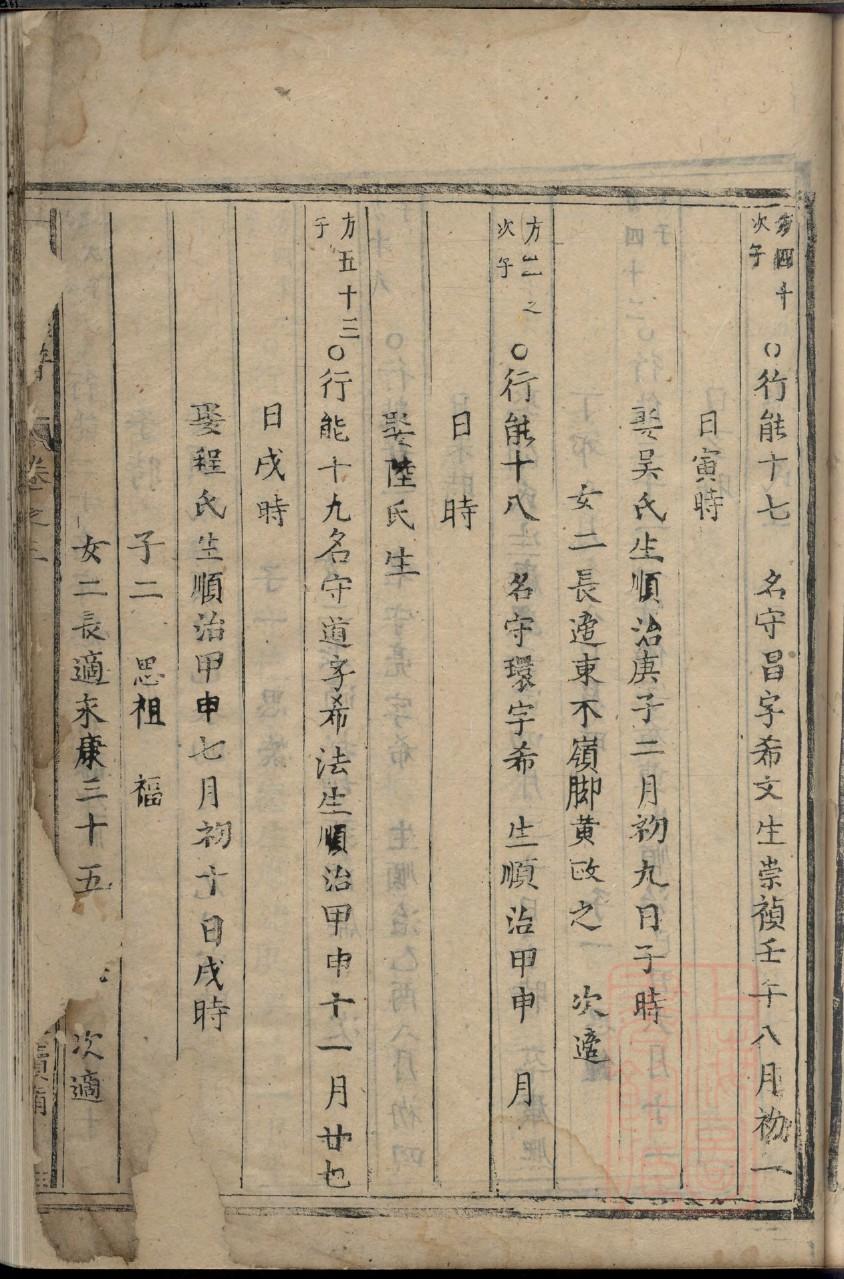 方四十次子○行能十七 名守昌字希文生崇禎壬午八月初一
日寅時
娶吴氏生順治庚子二月初九日子時
女二長適東不嶺脚黄政之 次適
方之次子○行能十八 名守環字希 生順治甲申 月
日 時
娶陸氏生
方五十三子○行能十九名守道字希法生順治甲申十一月廿七
日戌時
娶程氏生順治甲申七月初十日戌時
子二 思祖 福
女二長適來康三十五 次適
卷之三